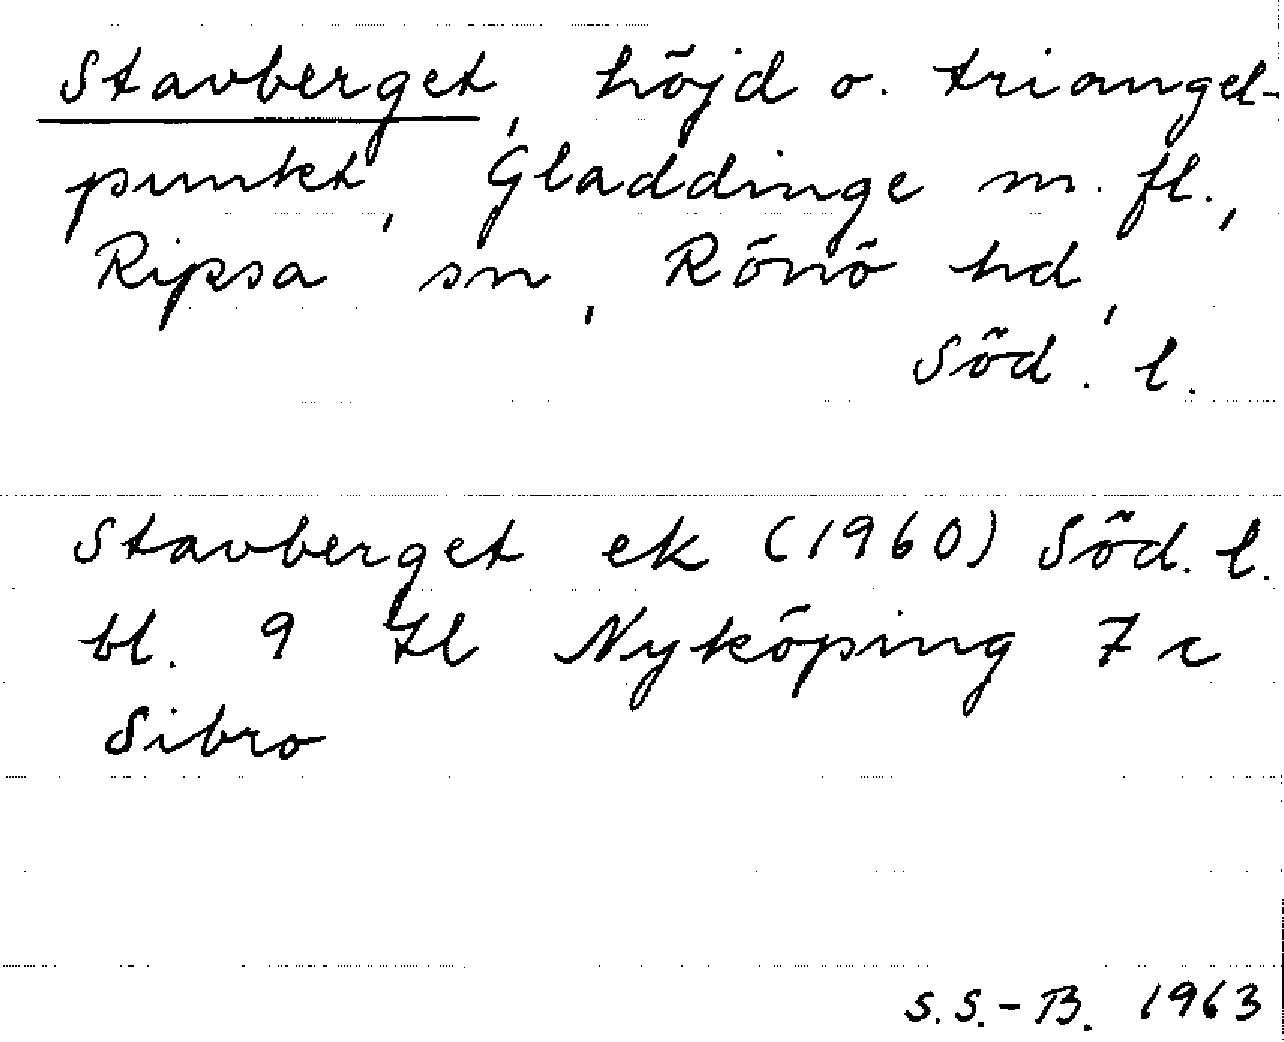 Stavberget, höjd o. triangel-
punkt, Gladdinge m. fl.,
Ripsa sn, Rönö hd,
Söd. l.
Stavberget ek (1960) Söd. l.
bl. 9 H Nyköping 7 c
Sibro
S.S.-B. 1963